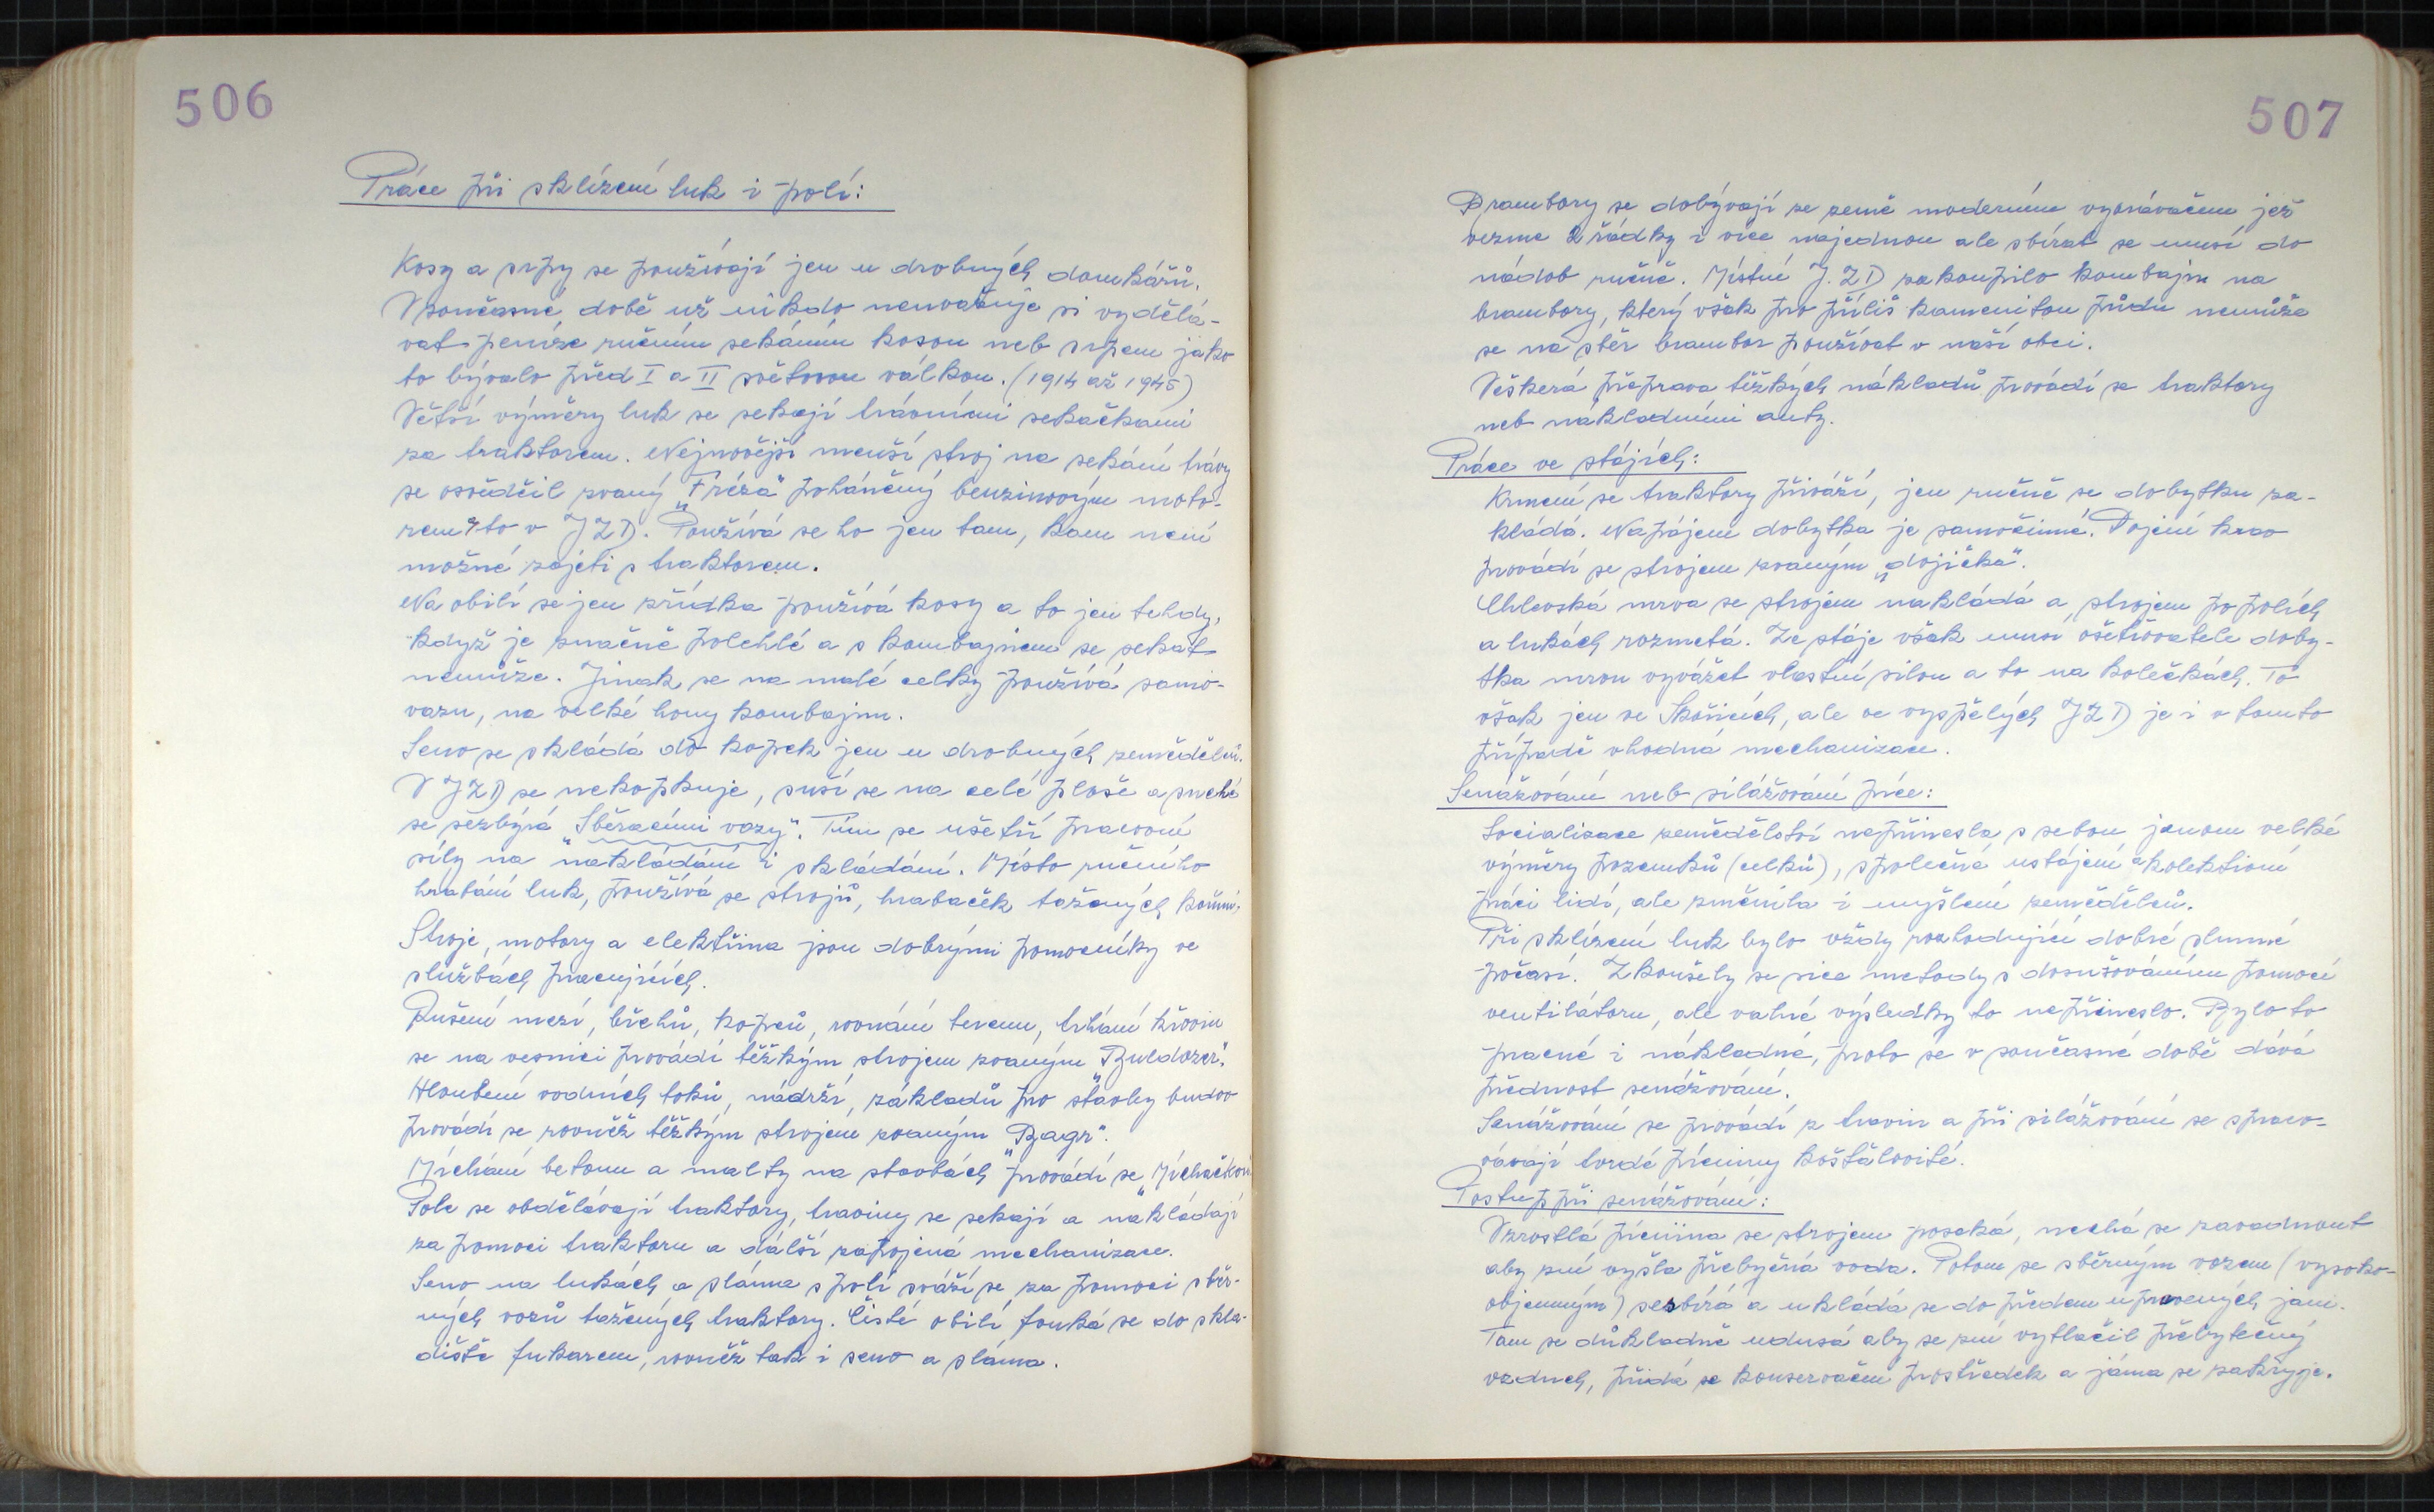 506
Práce při sklízení luk i polí:
Kosy a srpy se používají jen u drobných domkářů.
V současné době už nikdo neuvažuje si vydělá-
vat peníze ručním sekáním kosou neb srpem jako
to bývalo před I a II světovou válkou. (1914 až 1945)
Větší výměry luk se sekají trávními sekačkami
za traktorem. Nejnovější menší stroj na sekání trávy
se osvědčil zvaný „Fréza" poháněný benzinovým moto-
rem to v JZD. Používá se ho jen tam, kam není
možné zajeti s traktorem.
Na obilí se jen zřídka používá kosy a to jen tehdy,
když je značně polehlé a s kombajnem se sekat
nemůže. Jinak se na malé celky používá samo-
vazu, na velké hony kombajnu.
Seno se skládá do kopek jen u drobných zemědělců.
V JZD se nekopkuje, suší se na celé ploše a suché
se sezbírá „Sběracími vozy". Tím se ušetří pracovní
síly na nakládání i skládání. Místo ručního
hrabání luk, používá se strojů, hrabaček tažených koňmi.
Stroje, motory a elektřina jsou dobrými pomocníky ve
službách pracujících.
Rušení mezí, břehů, kopců, rovnání terenu, trhání křovin
se na vesnici provádí těžkým strojem zvaným „Buldozer".
Hloubení vodních toků, nádrží, základů pro stavby budov
provádí se rovněž těžkým strojem zvaným „Bagr".
Míchání betonu a malty na stavbách provádí se „Míchačkou
Pole se obdělávají traktory, traviny se sekají a nakládají
za pomoci traktoru a další zapojená mechanizace.
Seno na lukách a sláma s polí sváží se za pomoci sběr-
ných vozů tažených traktory. Čisté obilí fouká se do skla-
diště fukarem, rovněž tak i seno a sláma.
507
Brambory se dobývají ze země moderním vyorávačem jež
vezme 2 řádky i více najednou ale sbírat se musí do
nádob ručně. Místní J.ZD zakoupilo kombajn na
brambory, který však pro příliš kamenitou půdu nemůže
se na sběr brambor používat v naší obci.
Veškerá přeprava těžkých nákladů provádí se traktory
neb nákladními auty.
Práce ve stájích:
Krmení se traktory přiváží, jen ručně se dobytku za-
kládá. Napájení dobytka je samočinné. Dojení krav
provádí se strojem zvaným „dojička".
Chlevská mrva se strojem nakládá a strojem po polích
a lukách rozmetá. Ze stáje však musí ošetřovatelé doby-
tka mrvu vyvážet vlastní silou a to na kolečkách. To
však jen ve Skořicích, ale ve vyspělých JZD je i v tomto
případě vhodná mechanizace.
Senážování neb silážování píce:
Socializace zemědělství nepřinesla s sebou jenom velké
výměry pozemků (celků), společné ustájení a kolektivní
práci lidí, ale změnila i myšlení zemědělců.
Při sklízení luk bylo vždy rozhodující dobré slunné
počasí. Zkoušely se sice metody s dosušováním pomocí
ventilátoru, ale valné výsledky to nepřineslo. Bylo to
pracné i nákladné, proto se v současné době dává
přednost senážování.
Senážování se provádí z travin a při silážování se spraco-
vávají tvrdé pícniny košťálovité.
Postup při senážování:
Vzrostlá pícnina se strojem poseká, nechá se zavadnout
aby z ní vyšla přebyčná voda. Potom se sběrným vozem (vysoko-
objemným) sesbírá a ukládá se do předem upravených jam.
Tam se důkladně udusá aby se z ní vytlačil přebytečný
vzduch, přidá se konservační prostředek a jáma se zakryje.